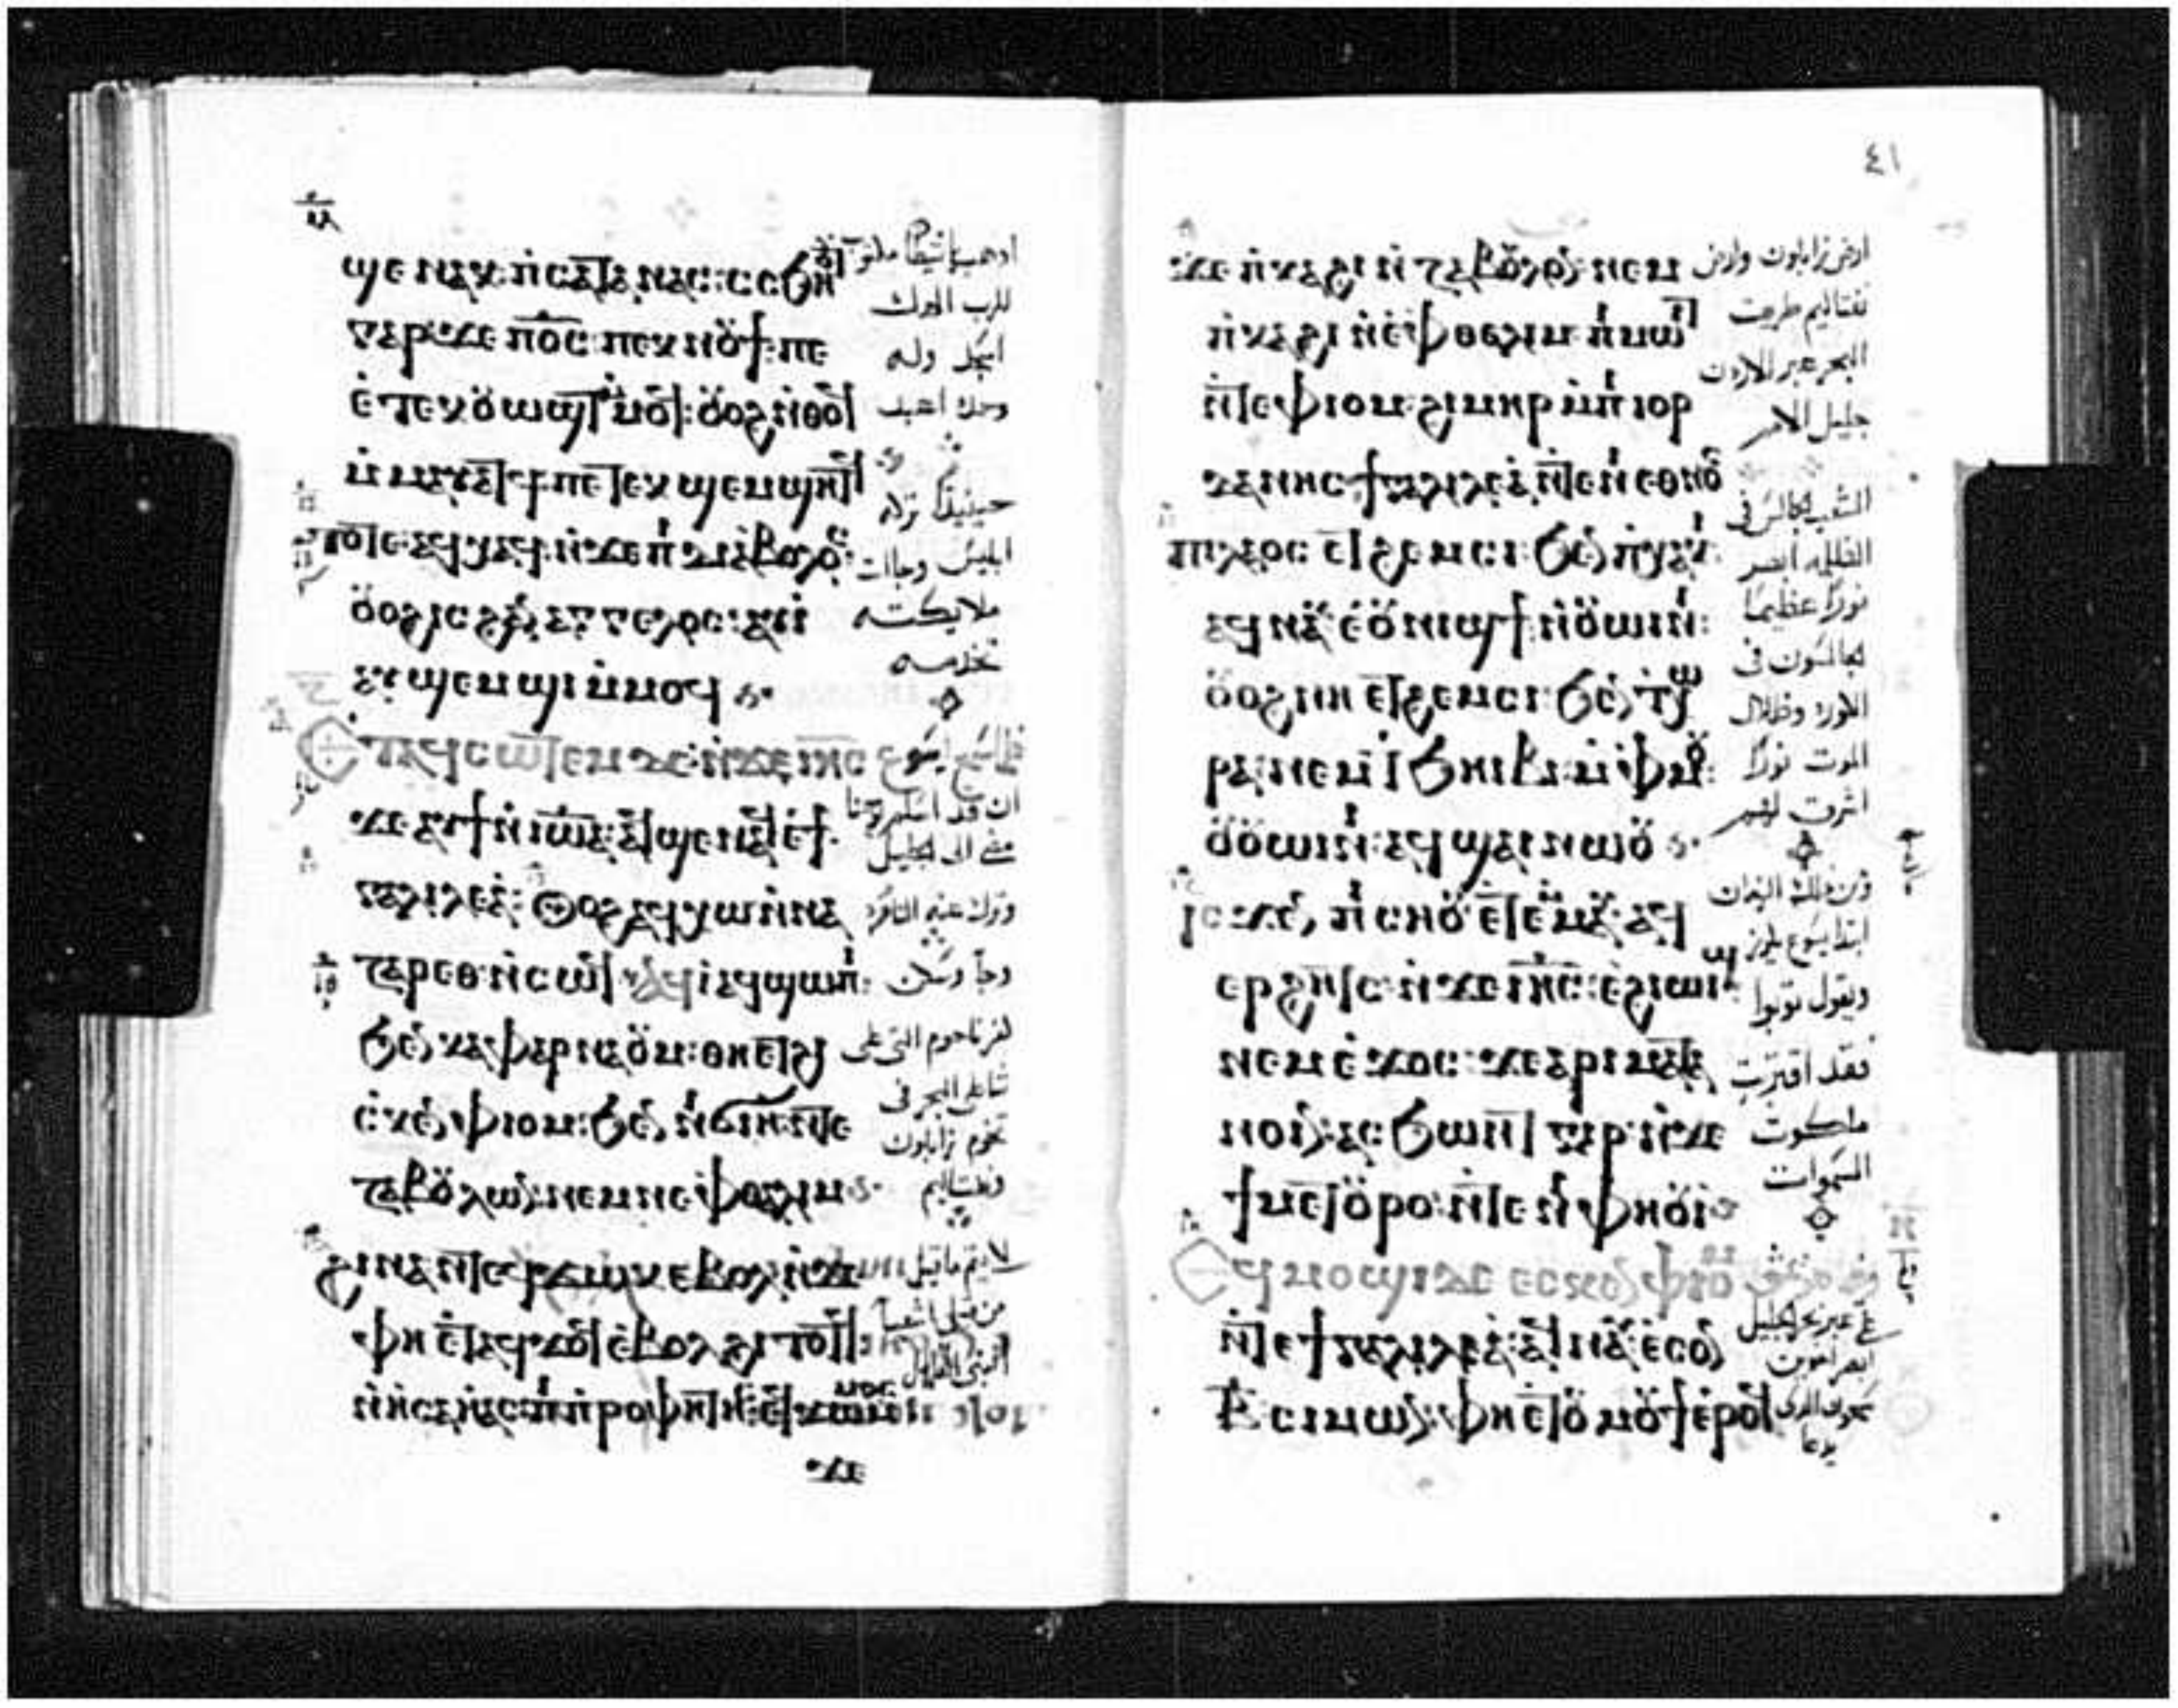 ϣⲉ ⲛⲁⲕ ⲡⲥⲁⲧⲁⲛⲁⲥ: ⲥⲥϧⲏⲟⲩⲧ
ⲅⲁⲣ ϫⲉ ⲡ̅ⲟ̅ⲥ̅ ⲡⲉⲕⲛⲟⲩϯ ⲡⲉ
ⲉⲧⲉⲕⲟⲩⲱϣⲧ ⲙⲙⲟϥ: ⲟⲩⲟϩ ⲛⲑⲟϥ
ⲙⲙⲁⲩⲁⲧϥ ⲡⲉⲧⲉⲕϣⲉⲙϣⲏⲧϥ
ⲧⲟⲧⲉ ⲁϥⲭⲁϥ ⲛϫⲉ ⲡⲇⲓⲁⲃⲟⲗⲟⲥ:
ⲟⲩⲟϩ ⲓⲥ ϩⲁⲛⲁⲅⲅⲉⲗⲟⲥ: ⲁⲩⲓ
ⲁⲩϣⲉⲙϣⲓ ⲙⲙⲟϥ
ⲉⲧⲁϥⲥⲱⲧⲉⲙ ⲇⲉ ⲛϫⲉ ⲓⲏ̅ⲥ̅
ϫⲉ ⲁⲩϯ ⲛⲓⲱⲁ: ⲁϥϣⲉⲛⲁϥ ⲉϯ
ⲅⲁⲗⲓⲗⲉⲁ: ⲟⲩⲟϩ ⲁϥⲭⲱ ⲛⲛⲁ
ⲍⲁⲣⲉⲑ ⲛⲥⲱϥ: ⲁϥⲓ ⲁϥϣⲱⲡⲓ:
ϧⲉⲛ ⲕⲁⲫⲁⲣⲛⲁⲟⲩⲙ: ⲑⲏ ⲉⲧϩⲓ
ⲥⲕⲉⲛ ⲫⲓⲟⲙ: ϧⲉⲛ ⲛϭⲓⲏ ⲛⲧⲉ
ⲍⲁⲃⲟⲩⲗⲱⲛ: ⲛⲉⲙ ⲛⲉⲫⲑⲁⲗⲓⲙ
ϩⲓⲛⲁ ⲛⲧⲉϥϫⲱⲕ ⲉⲃⲟⲗ ⲛϫⲉ
ⲫⲏ ⲉⲧⲁϥϫⲟϥ ⲉⲃⲟⲗ ϩⲓⲧⲟⲧϥ:
ⲛⲏⲥⲁⲓⲁⲥ ⲡⲓⲡⲣⲟⲫⲏⲧⲏⲥ ⲉϥϫⲱ ⲙⲙⲟⲥ
ϫⲉ
ادهب يا شيطان مكتوب
للرب الهك
اسجد وله
وحده اعبد
حينيذ تركه
ابليس وجاات
ملايكته
تخدمه
فلما سمع يسوع
ان قد اسلم يوحنا
مضى الى الجليل
وترك عنه الناصره
وجا وسكن
كفرناحوم التى على
شاطى البحر فى
تخوم زابلون
ونفتاليم
٤١
ϫⲉ ⲡⲕⲁϩⲓ ⲛⲍⲁⲃⲟⲩⲗⲟⲛ: ⲛⲉⲙ
ⲡⲕⲁϩⲓ ⲛⲉⲫⲑⲁⲗⲓⲙ: ⲡⲙⲱⲓⲧ
ⲛⲧⲉ ⲫⲓⲟⲙ: ϩⲓⲙⲏⲣ ⲙⲡⲓⲟⲣ
ⲇⲁⲛⲏⲥ: ϯⲅⲁⲗⲓⲗⲉⲁ ⲛⲧⲉ ⲛⲓⲉⲑⲛⲟⲥ
ⲡⲓⲗⲁⲟⲥ ⲉⲧϩⲉⲙⲥⲓ: ϧⲉⲛ ⲡⲭⲁⲕⲓ:
ⲁϥⲛⲁⲩ ⲉⲟⲩⲛⲓϣϯ ⲛⲟⲩⲱⲓⲛⲓ:
ⲟⲩⲟϩ ⲛⲏ ⲉⲧϩⲉⲙⲥⲓ: ϧⲉⲛ ⲧⲭⲱ
ⲣⲁ: ⲛⲉⲙ ⲧϧⲏⲓⲃⲓ ⲙⲫⲙⲟⲩ:
ⲟⲩⲟⲩⲱⲓⲛⲓ: ⲁϥϣⲁⲓ ⲛⲱⲟⲩ
ⲓⲥϫⲉⲛ ⲡⲓⲥⲏⲟⲩ ⲉⲧⲉⲙⲙⲁⲩ: ⲁϥ
ⲉⲣϩⲏⲧⲥ ⲛϫⲉ ⲓⲏ̅ⲥ̅: ⲉϩⲓⲱⲓϣ
ⲛⲉⲙ ⲉϫⲟⲥ: ϫⲉ ⲁⲣⲓⲙⲉⲧⲁ
ⲛⲟⲓⲛ: ⲁⲥϧⲱⲛⲧ ⲅⲁⲣ ⲛϫⲉ
ϯⲙⲉⲧⲟⲩⲣⲟ: ⲛⲧⲉ ⲛⲓⲫⲏⲟⲩⲓ
ⲉϥⲙⲟϣⲓ ⲇⲉ ⲉⲥⲕⲉⲛ ⲫⲓⲟⲙ
ⲛⲧⲉ ϯⲅⲁⲗⲓⲗⲉⲁ: ⲁϥⲛⲁⲩ ⲉⲥⲟⲛ
ⲃ̅ ⲥⲓⲙⲱⲛ: ⲫⲏ ⲉⲧⲟⲩⲙⲟⲩϯ ⲉⲣⲟϥ
ارض زابلون وارض
نفتاليم طريق
البحر عبر الاردن
جليل الامم
الشعب الجالس فى
الظلمه ابصر
نورًا عظيمًا
الجالسون فى
الكوره وظلال
الموت نورًا
اشرق لهم
من ذلك الزمان
ابتدا يسوع يكرز
ويقول توبوا
فقد اقتربت
ملكوت
السموات